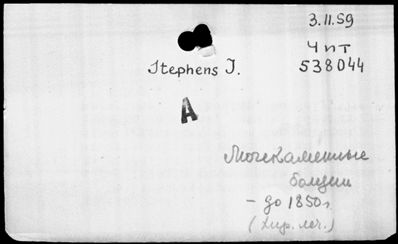 3.II.59
Чит
538044
Stephens J.
А
Мочекаменные
болезни
– до 1850 г.
(хир. леч.)